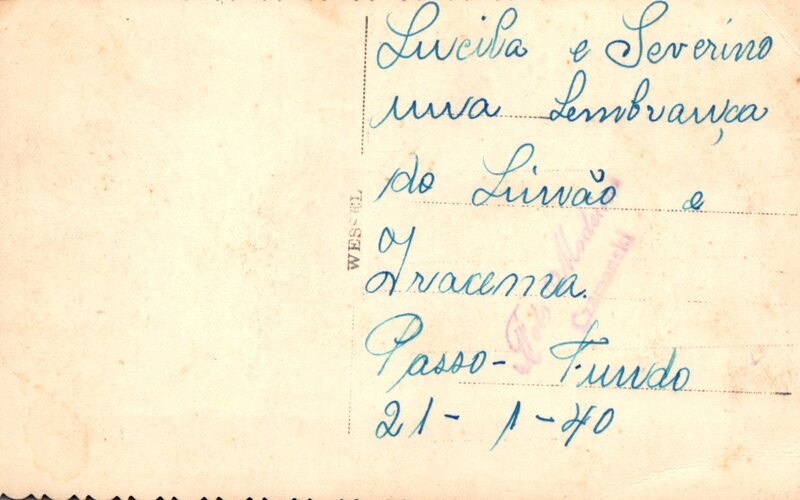 Lucila e Severino
uma Lembrança
do Limão e
Iracema.
Passo-Fundo
21-1-40
WESSEL
Foto Moderna
Czamanski